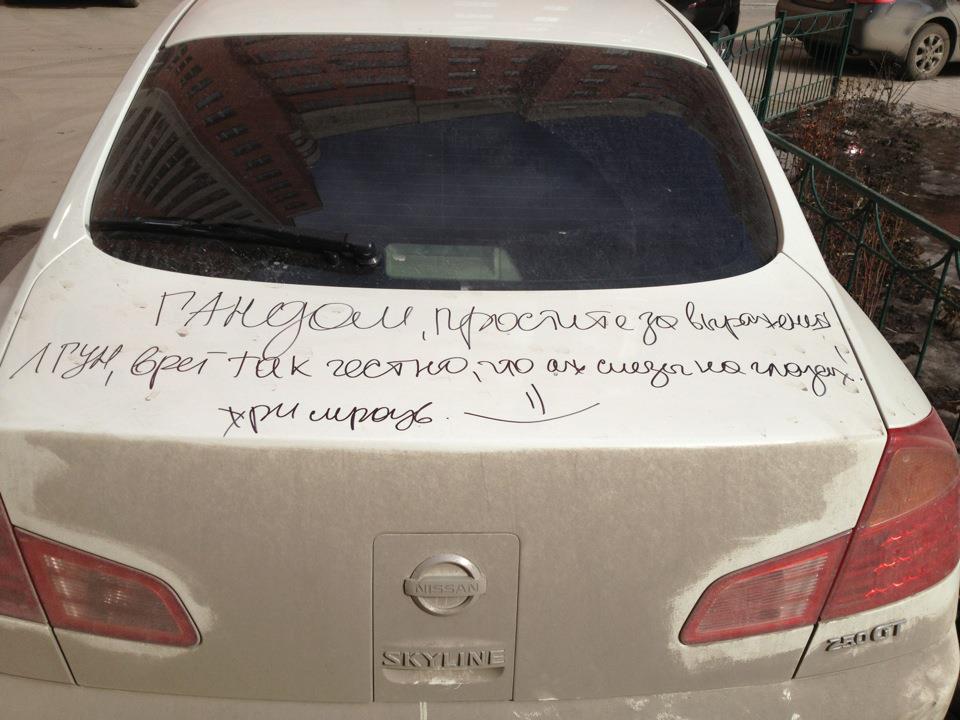 ГАНДОМ, простите за выражения
ЛГУН, врет так честно, что аж слезы на глазах!
))
NISSAN
SKYLINE
250GT